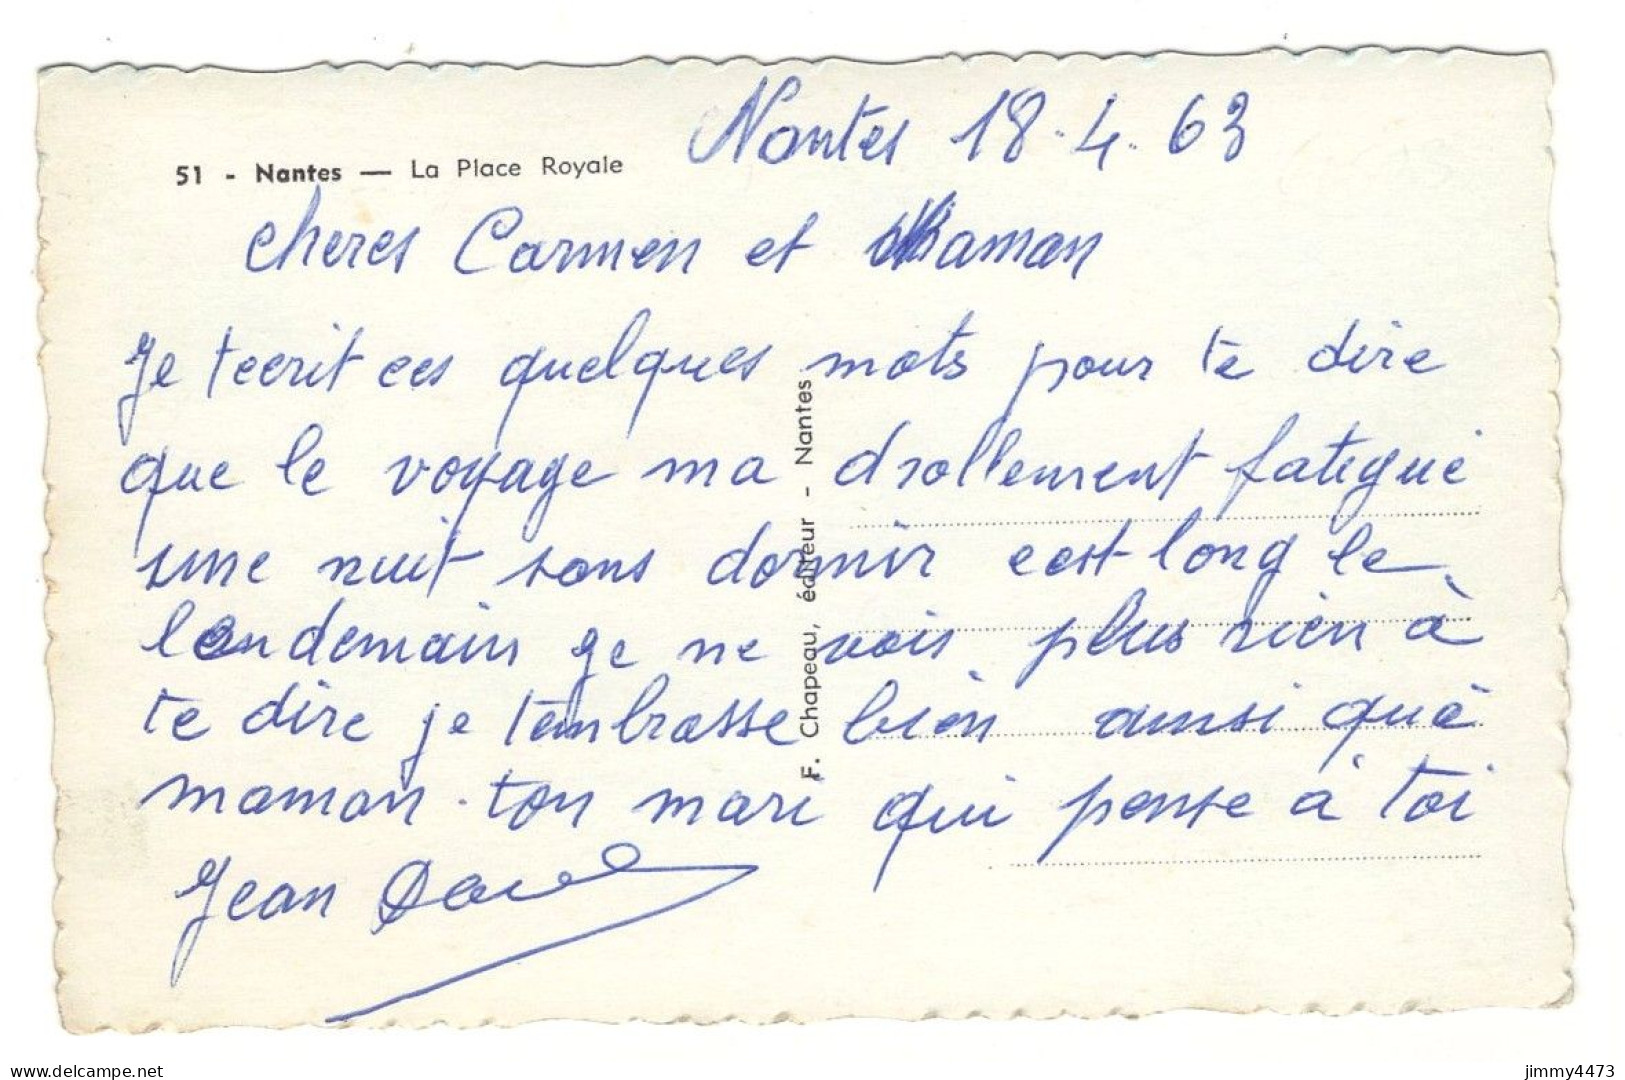 Nantes 18.4.63
51 - Nantes — La Place Royale
cheres Carmen et Maman
Je tecrit ces quelques mots pour te dire
que le voyage ma drollement fatigué
une nuit sans dormir cest long le
lendemain ge ne vois plus rien à
te dire je tembrasse bien ainsi què
maman. ton mari qui pense à toi
Jean
F. Chapeau, éditeur - Nantes
www.delcampe.net
jimmy4473